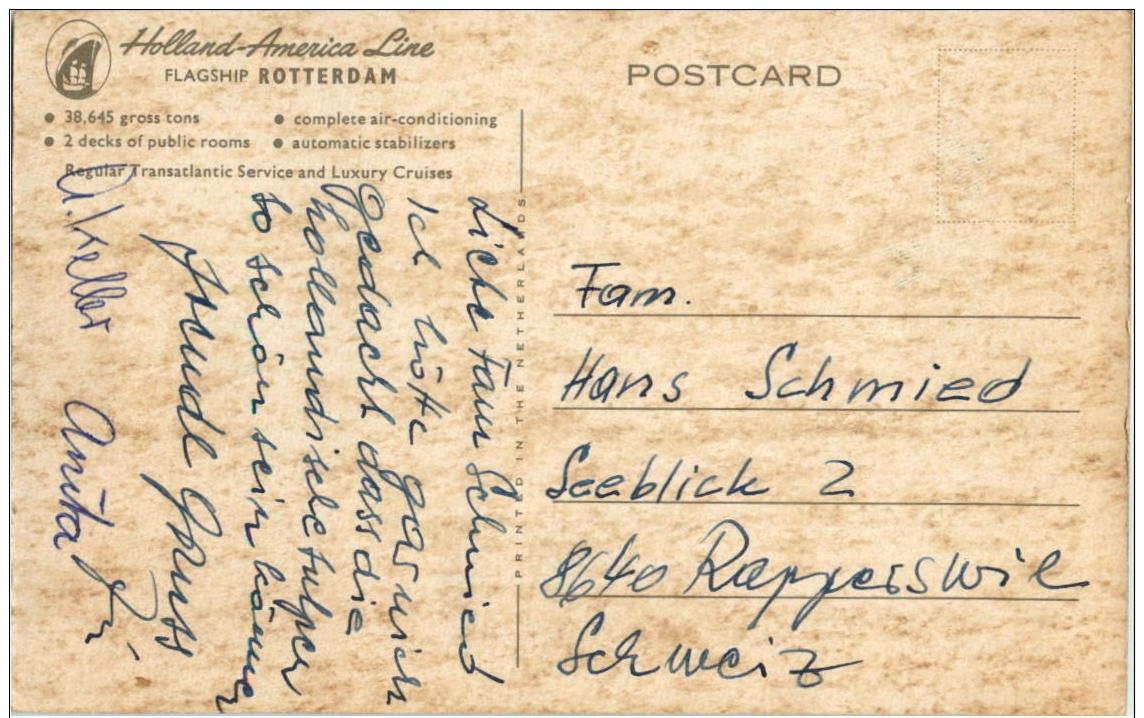 Holland-America Line
FLAGSHIP ROTTERDAM
• 38,645 gross tons
• 2 decks of public rooms
• complete air-conditioning
• automatic stabilizers
Regular Transatlantic Service and Luxury Cruises
POSTCARD
PRINTED IN THE NETHERLANDS
Liebe Fam Schmied
Ich hätte gar nicht
gedacht dass die
holländische tulpen
so schön sein können
Gruss
Keller Anita
Fam.
Hans Schmied
Seeblick 2
8640 Rapperswil
Schweiz